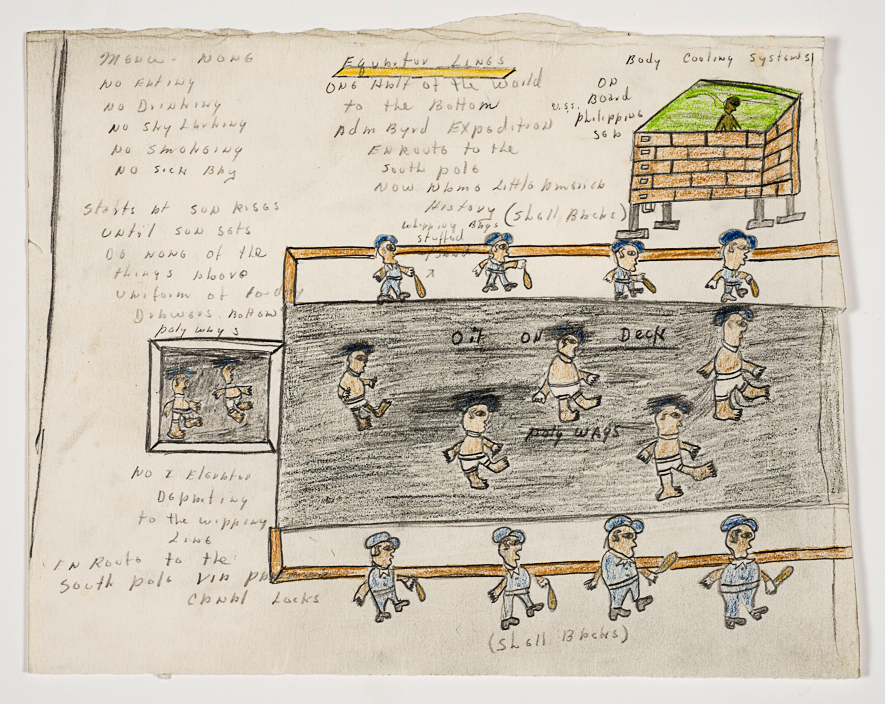 Menu - None
No Eating
No Drinking
No Sky Larking
No Smokeing
No Sick Bay
Starts at Sun Rises
Until Sun Sets
Do None of the
things Above
Uniform of
Drawers Bottom
poly ways
No 1 Elevator
Departing
to the wipping
Line
En Route to the
South pole Via
Canal Locks
Equator Lines
One Half of the World
to the Bottom
Adm Byrd Expedition
En Route to the
South pole
Now Name Little America
History (Shell Backs)
whipping Bags
stuffed
Body Cooling Systems
On
Board
U.S.S. philippine
Sea
Oil On Deck
poly ways
(Shell Backs)